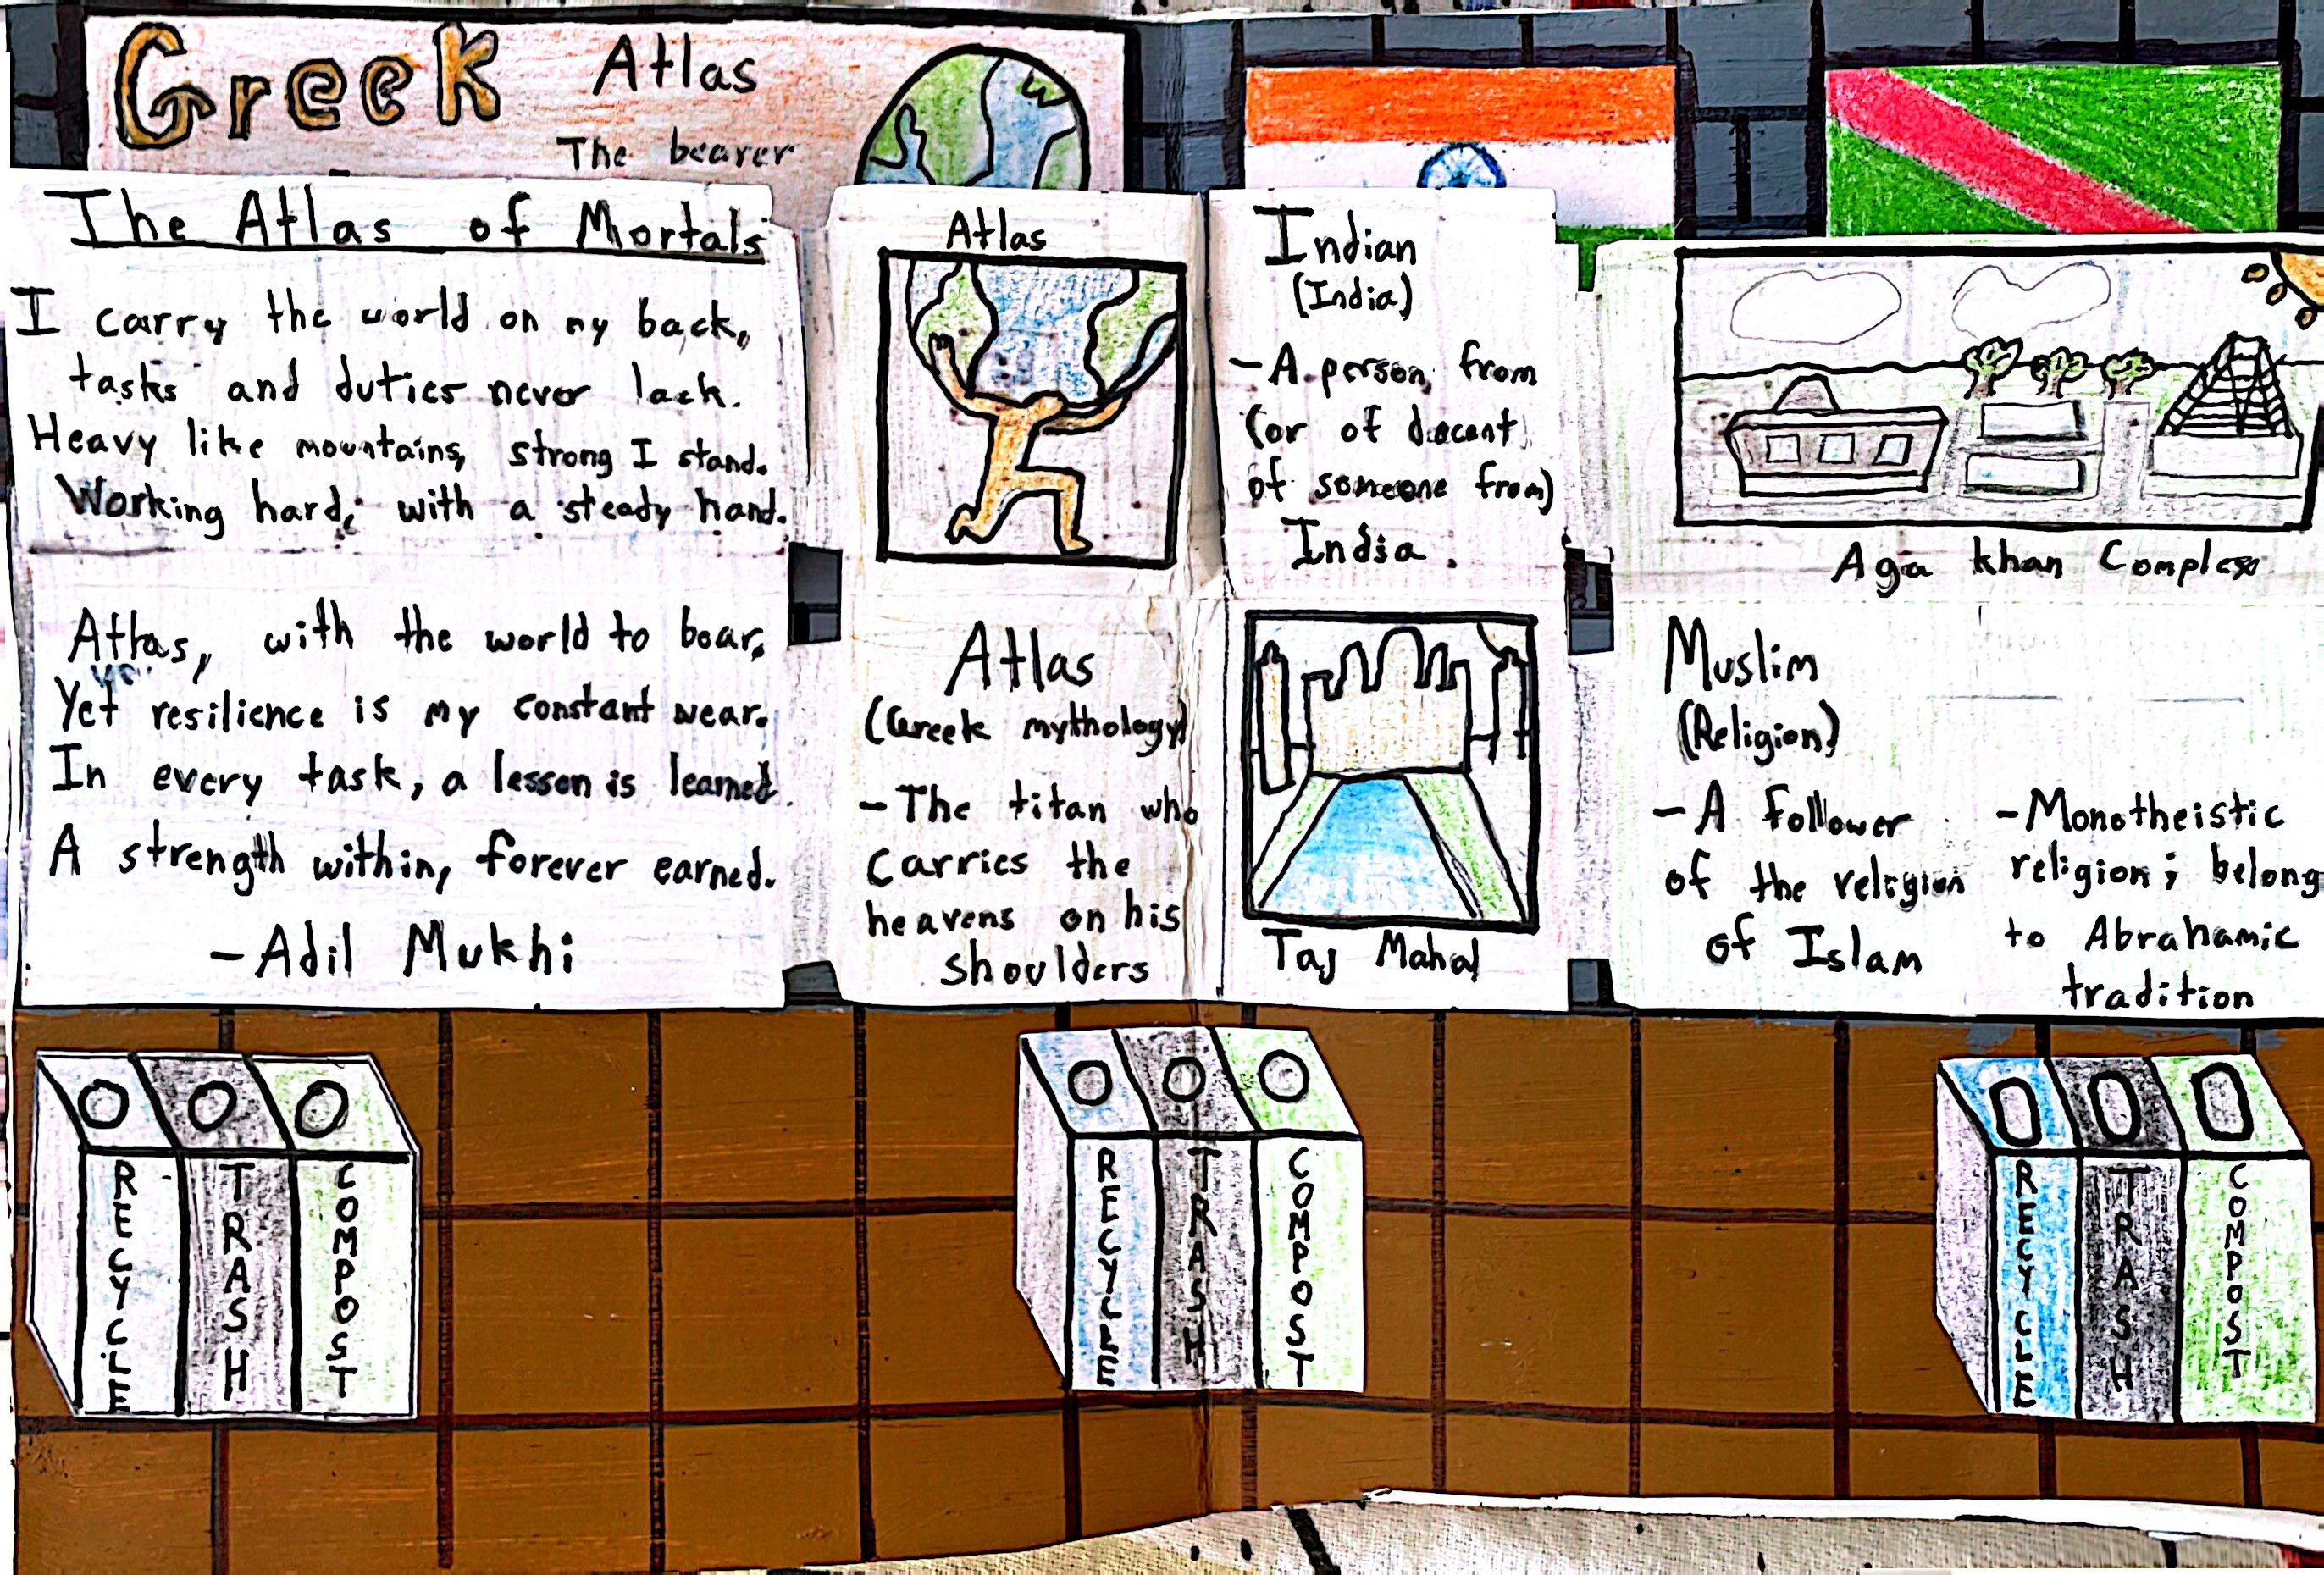 Greek Atlas
The bearer
The Atlas of Mortals
I carry the world on my back,
tasks and duties never lack.
Heavy like mountains, strong I stand.
Working hard, with a steady hand.
Atlas, with the world to bear,
Yet resilience is my constant wear.
In every task, a lesson is learned.
A strength within, forever earned.
-Adil Mukhi
Atlas
Atlas
(Greek mythology)
-The titan who
carries the
heavens on his
shoulders
Indian
(India)
-A person from
(or of decent
of someone from)
India.
Taj Mahal
Aga khan Complex
Muslim
(Religion)
-A follower
of the religion
of Islam
-Monotheistic
religion; belong
to Abrahamic
tradition
RECYCLE
TRASH
COMPOST
RECYCLE
TRASH
COMPOST
RECYCLE
TRASH
COMPOST